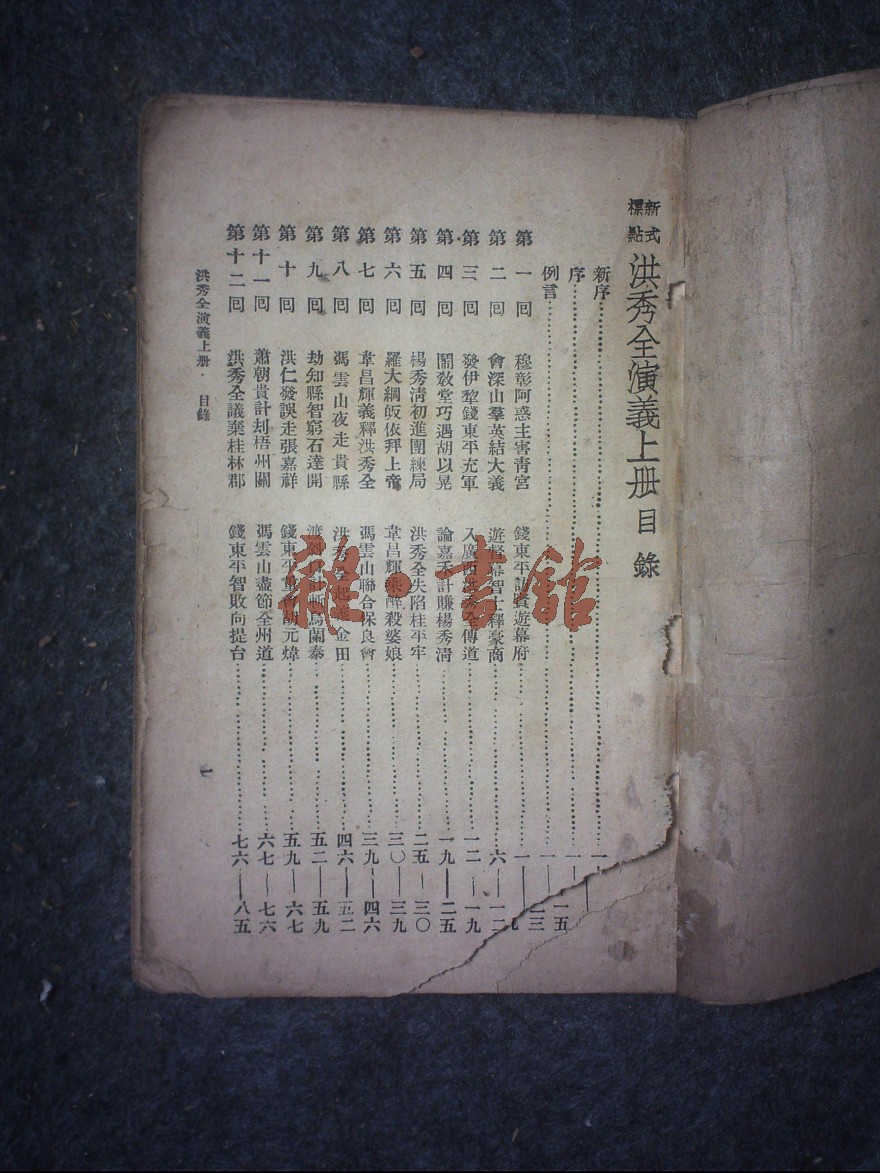 新式標點 洪秀全演義上册 目錄
新序……一
序……一
例言……一 一五
第一回 穆彰阿惑主害青宮 錢東平 遊幕府……一
第二回 會深山羣英結大義 遊督幕智士釋豪商……六——一二
第三回 發伊犂錢東平充軍 入廣西洪秀全傳道……一二——一九
第四回 鬧教堂巧遇胡以晃 論嘉禾計賺楊秀淸……一九——二五
第五回 楊秀淸初進團練局 洪秀全失陷桂平牢……二五——三〇
第六回 羅大綱皈依拜上帝 韋昌輝乘醉殺婆娘……三〇——三九
第七回 韋昌輝義釋洪秀全 馮雲山聯合保良會……三九——四六
第八回 馮雲山夜走貴縣 洪秀全起義金田……四六——五二
第九回 劫知縣智窮石達開 計斬烏蘭泰……五二——五九
第十回 洪仁發誤走張嘉祥 錢東平 胡元煒……五九——六七
第十一回 蕭朝貴計刦梧州關 馮雲山盡節全州道……六七——七六
第十二回 洪秀全議棄桂林郡 錢東平智敗向提台……七六——八五
洪秀全演義上册 · 目錄 一
雜·書館